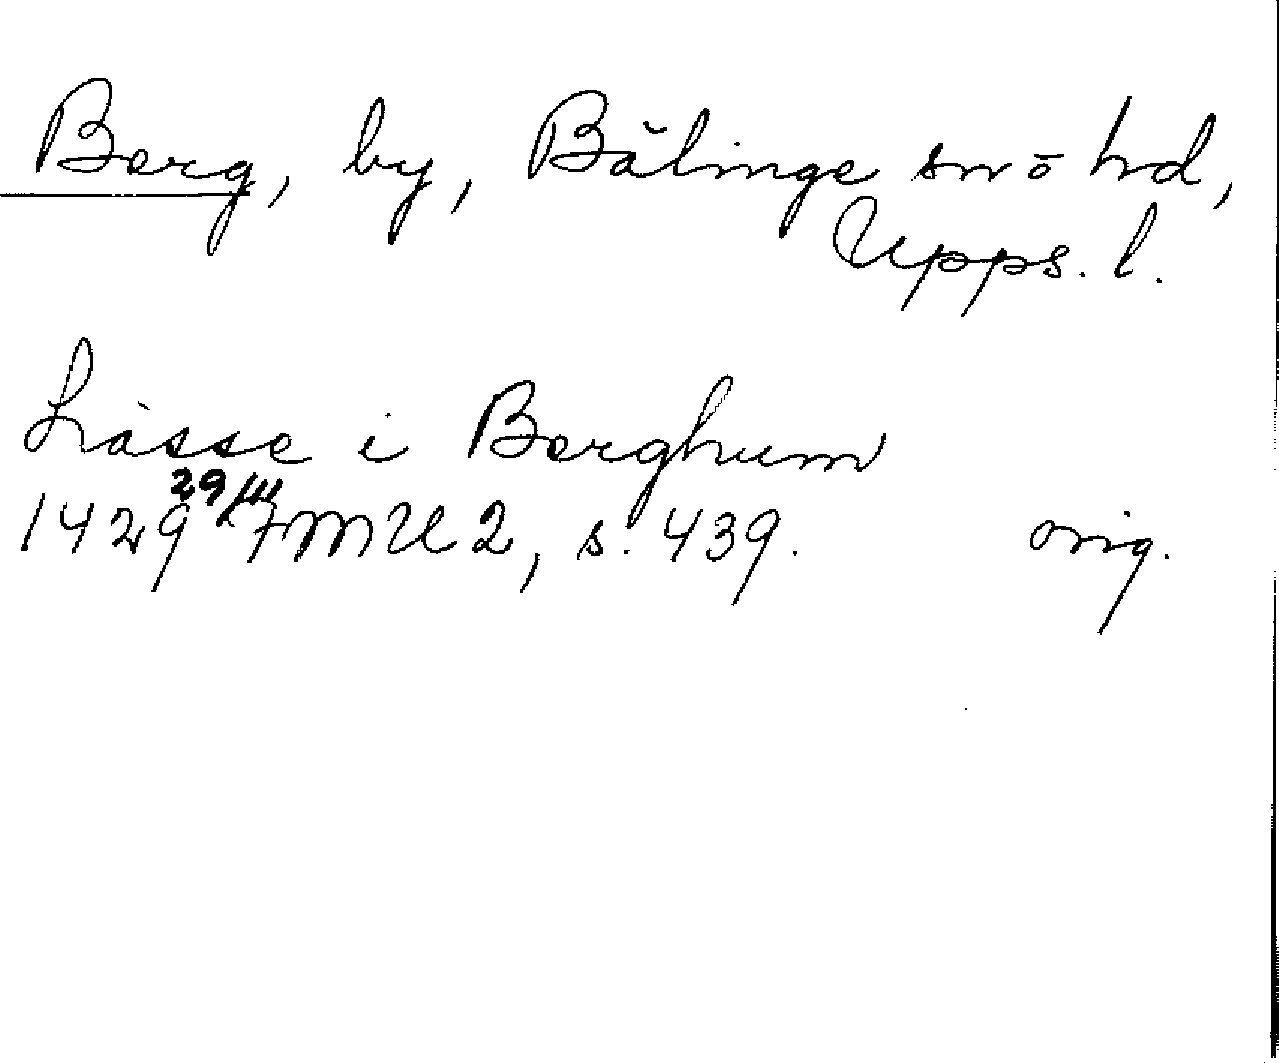 Berg, by, Bälinge sn o hd,
Upps. l.
Lasse i Berghum
1429 29/III FMU 2, s. 439. orig.